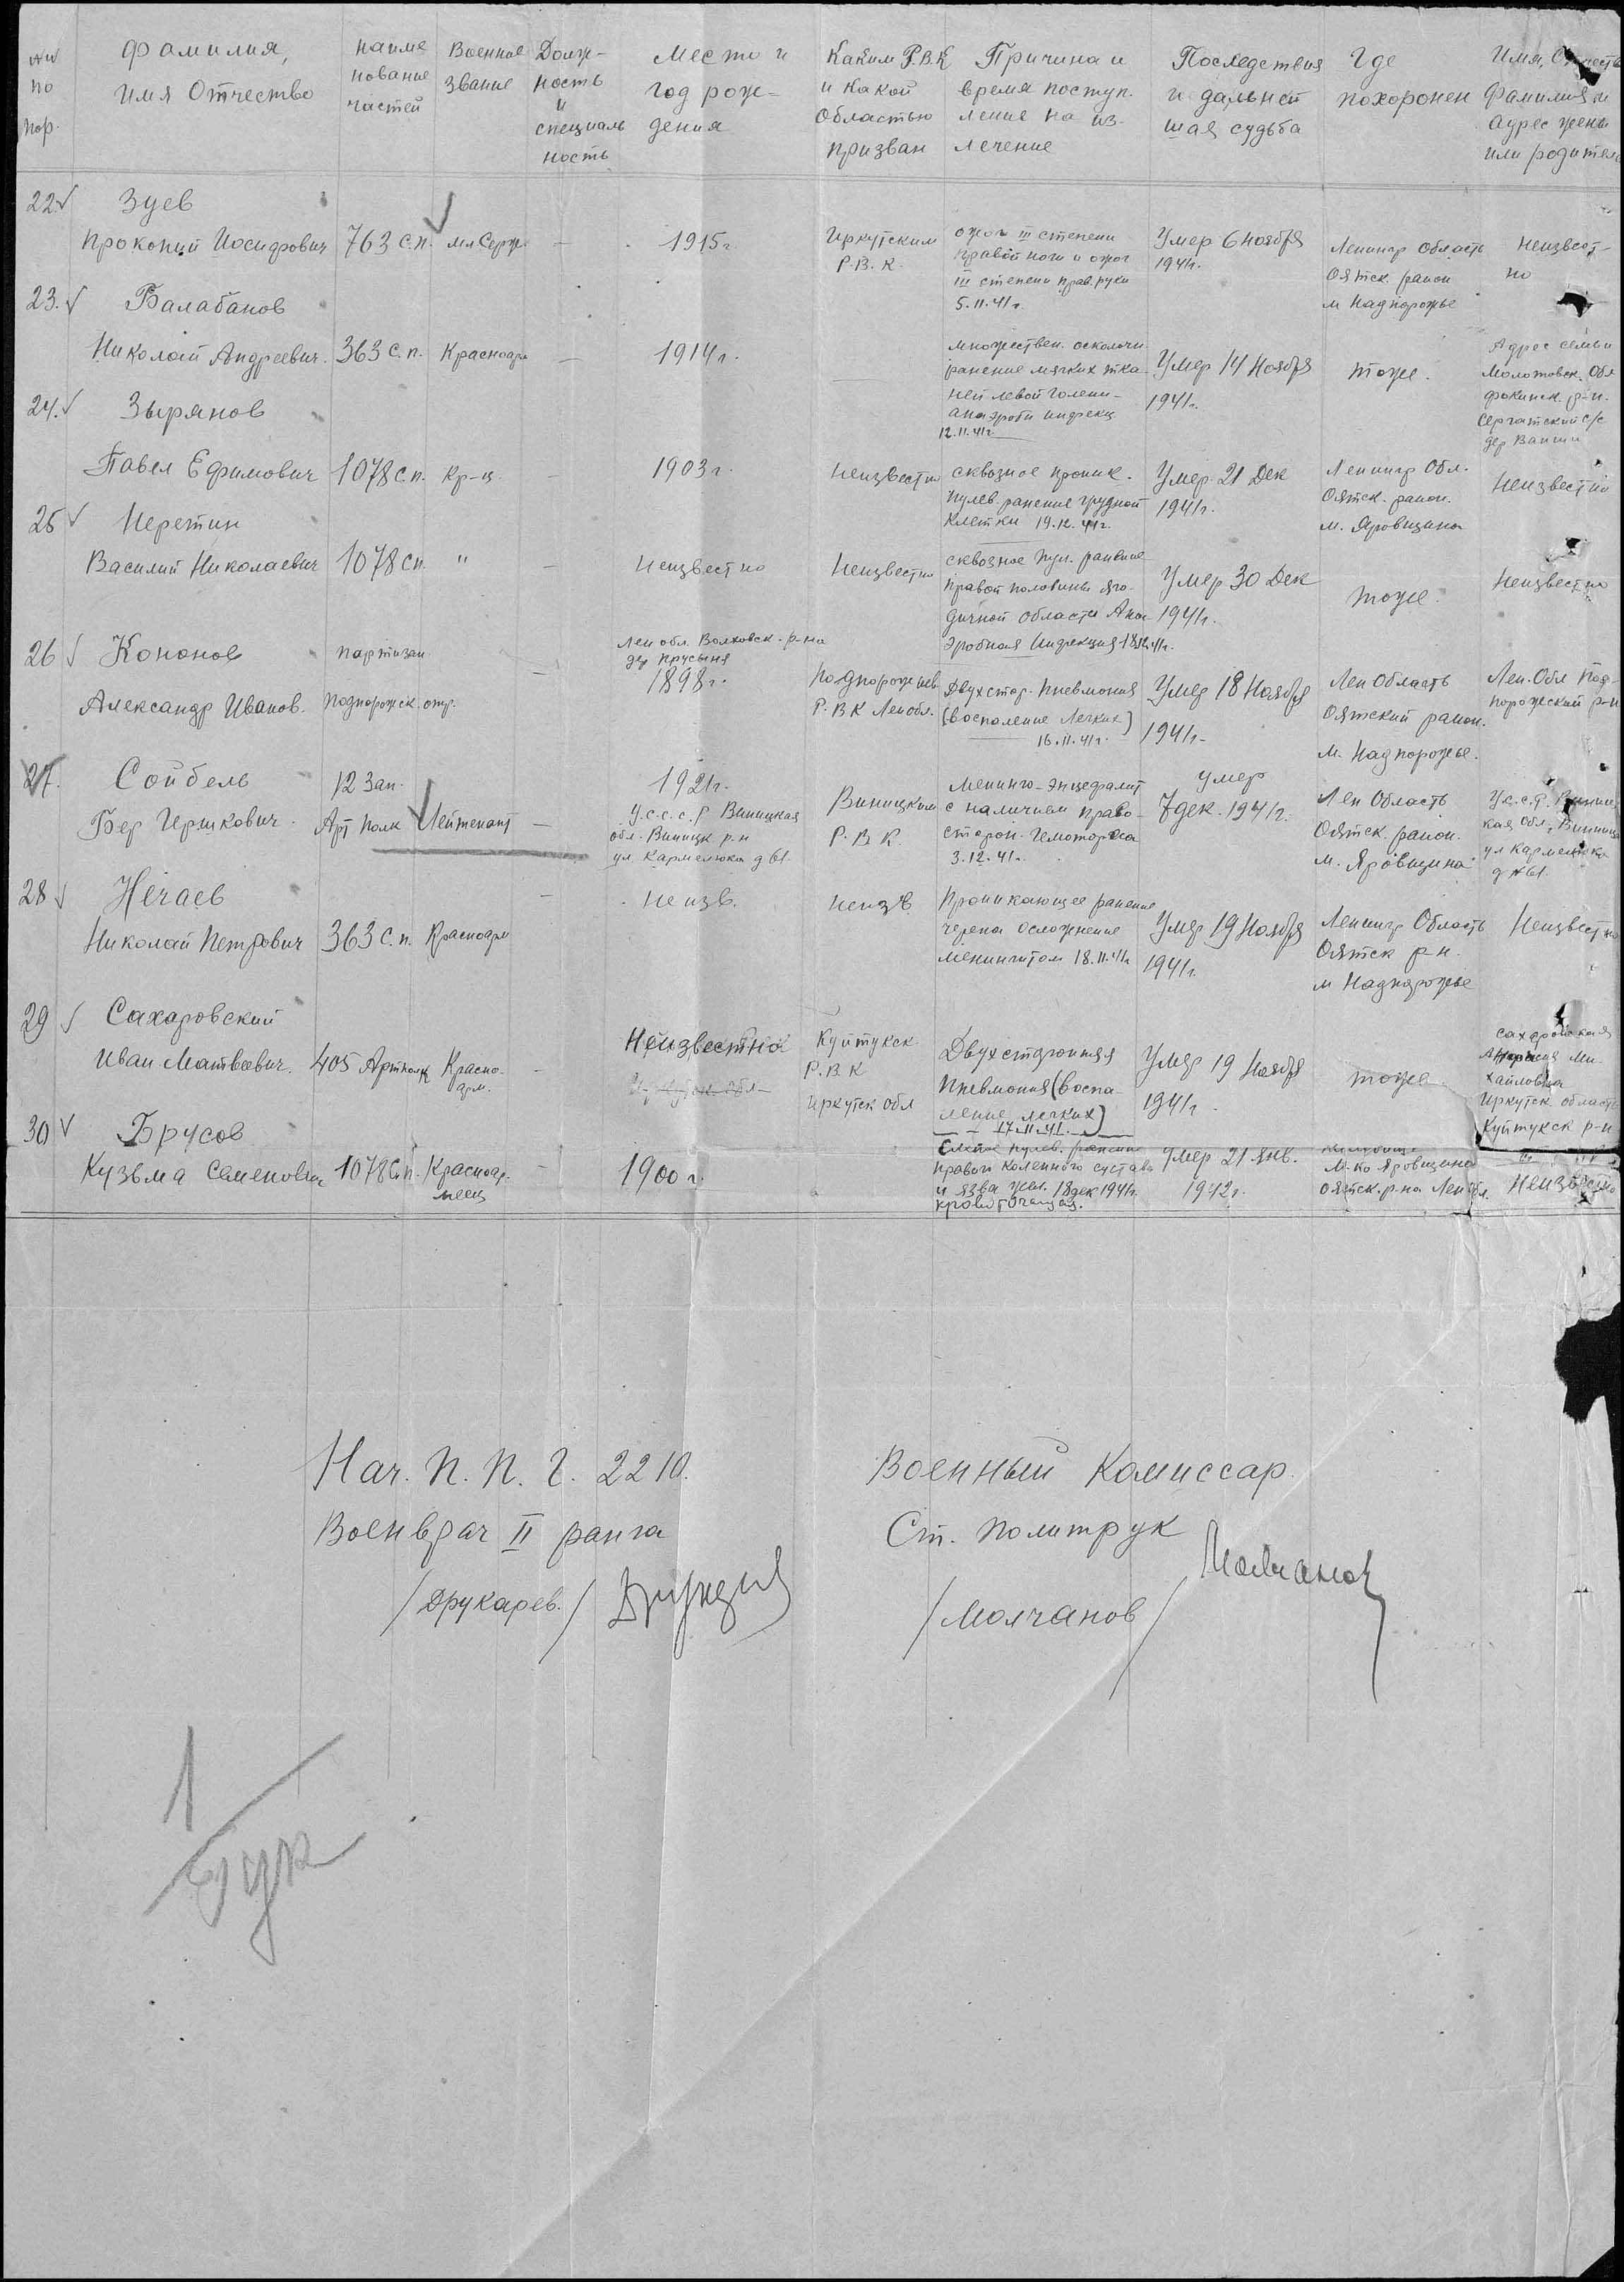 №№ по пор.
Фамилия, Имя Отчество
Наименование частей
Военное звание
Должность и специальность
Место и год рождения
Каким Р.В.К и какой областью призван
Причина и время поступления на излечение
Последствия и дальнейшая судьба
Где похоронен
Имя, Отчество Фамилия и адрес жены или родителей
22. Зуев
Прокопий Иосифович 763 с.п. мл Серж — 1915 г.
Иркутским Р.В.К.
ожог III степени
правой ноги и ожог
III степени прав. руки
5.11.41 г.
Умер 6 ноября
1941г.
Ленингр область
Оятск. район
м Надпорожье
Неизвест-
но
23. Балабанов
Николай Андреевич. 363 с.п. Красноарм — 1914 г.
множествен. осколочн
ранение мягких тка-
ней левой голени-
анаэробн инфекц
12.11.41г
Умер 14 Ноября
1941г.
тоже.
Адрес семьи
Молотовск. Обл
Фокинск. р-н.
дер Ванши
24. Зырянов
Павел Ефимович 1078 с.п. кр-ц. — 1903 г.
Неизвестно
сквозное проник.
пулев ранение грудной
клетки 19.12.41г.
Умер 21 Дек
1941г.
Ленингр Обл.
Оятск. район.
м. Яровщина
Неизвестно
25 Перетин
Василий Николаевич 1078 сп. " — Неизвестно
Неизвестно
сквозное пул. ранение
правой половины яго-
дичной области Ана-
эробная инфекция
Умер 30 Дек
1941г.
тоже.
Неизвестно
26 Кононов
Александр Иванов.
партизан
Подпорожск. отр.
—
Лен обл. Волховск. р-на
дер Прусыня
1898 г.
Подпорожск
Р.В.К Лен обл.
Двухстор. Пневмония
(воспаление Легких)
16.11.41г.
Умер 18 Ноября
1941г.
Лен Область
Оятский район.
м. Надпорожье.
Лен. Обл Под-
порожский р-н
27. Сойбель
Бер Гершкович.
12 Зап.
Арт Полк Лейтенант —
1921г.
У.с.с.р Виницкая
обл. Виницк р.н
ул. Кармелюка д 61.
Виницким
Р.В.К.
Менинго-энцефалит
с наличием право-
сторон. Гемоторакса
3.12.41г.
умер
7 дек. 1941г.
Лен Область
Оятск. район.
м. Яровщина
У.с.с.р. Виниц
кая обл, Виниц
ул Кармелюка
д №61.
28 Нечаев
Николай Петрович 363 с.п. Красноарм
— Неизв.
Неизв
Проникающее ранение
черепа осложнение
менингитом 18.11.41г
Умер 19 Ноября
1941г.
Ленингр Область
Оятск р-н.
м Надпорожье
Неизвестно
29 Сахаровский
Иван Матвеевич. 405 Артполк Красно-
арм.
— Неизвестно
Куйтукск.
Р.В.К
Иркутск обл
Двухстронняя
Пневмония (воспа-
ление легких)
17.11.41.
Умер 19 Ноября
1941г.
тоже
Сахаровская
Ми-
хайловна
Иркутск область
Куйтукск р-н
30 Брусов
Кузьма Семенович 1078 с.п. Красноар-
меец
— 1900 г.
Слепое пулев. ранение
правого коленного сустава
и язва жел. 18 дек 1941г.
кровоточащая.
Умер 21 янв.
1942г.
Кладбище
М-ко Яровщина
Оятск. р-на Лен обл.
Неизвестно
Нач. П. П. Г. 2210.
Военврач II ранга
/Друкарев./
Военный Комиссар.
Ст. Политрук
/Молчанов/
Молчанов
1